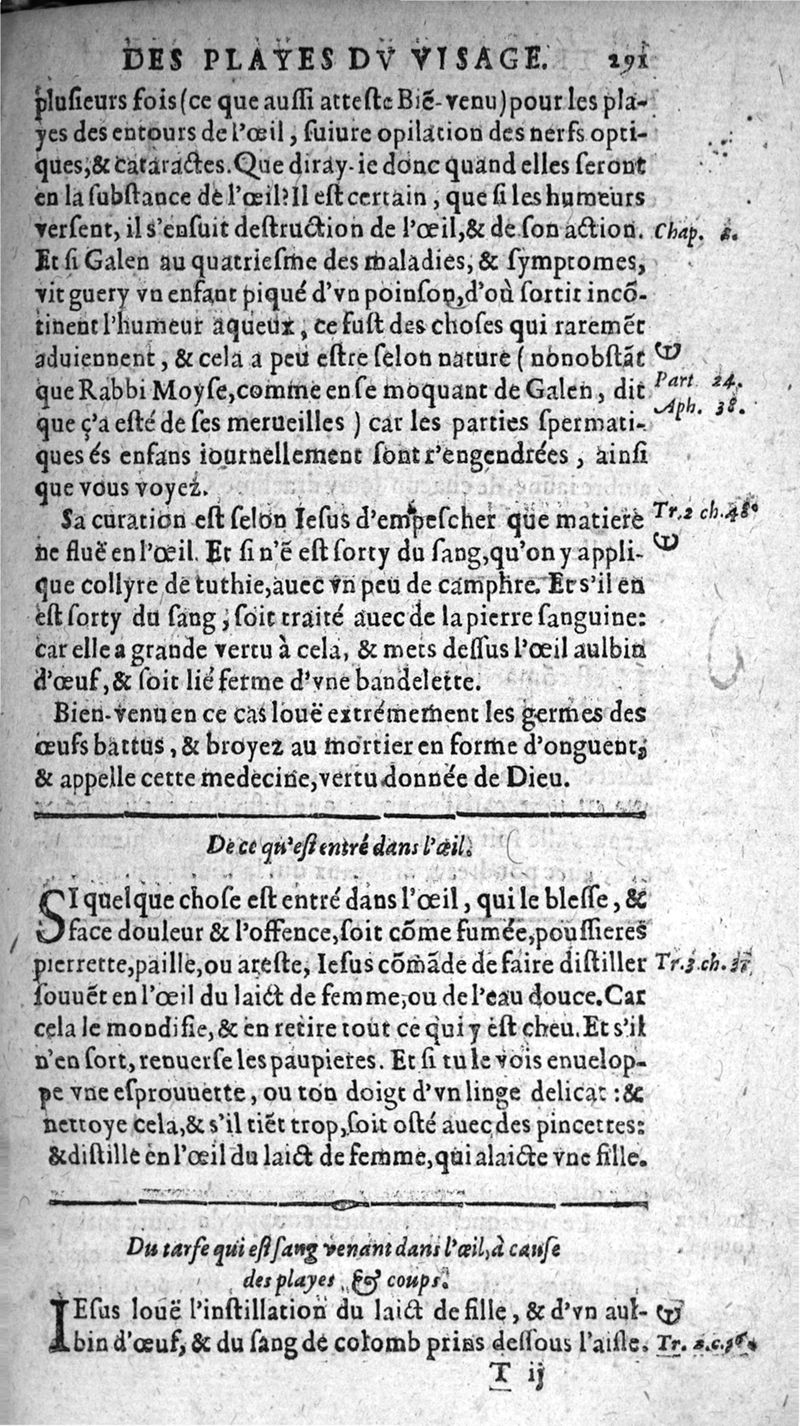 DES PLAYES DV VISAGE. 291
pluſieurs fois (ce que auſſi atteſte Biē-venu) pour les pla-
yes des entours de l'œil, ſuiure opilation des nerfs opti-
ques, & cataractes. Que diray-ie donc quand elles ſeront
en la ſubſtance de l'œil? Il eſt certain, que ſi les humeurs
verſent, il s'enſuit deſtruction de l'œil, & de ſon action. Chap.
Et ſi Galen au quatrieſme des maladies, & ſymptomes,
vit guery vn enfant piqué d'vn poinſon, d'où ſortit incō-
tinent l'humeur aqueux, ce fuſt des choſes qui raremēt
aduiennent, & cela a peu eſtre ſelon nature (nonobſtāt
que Rabbi Moyſe, comme en ſe moquant de Galen, dit Part 24.
que ç'a eſté de ſes merueilles) car les parties ſpermati- Aph. 38.
ques és enfans iournellement ſont r'engendrées, ainſi
que vous voyez.
Sa curation eſt ſelon Ieſus d'empeſcher que matiere Tr. 2 ch. 48.
ne fluë en l'œil. Et ſi n'ē eſt ſorty du ſang, qu'on y appli-
que collyre de tuthie, auec vn peu de camphre. Et s'il en
eſt ſorty du ſang, ſoit traité auec de la pierre ſanguine:
car elle a grande vertu à cela, & mets deſſus l'œil aulbin
d'œuf, & ſoit lié ferme d'vne bandelette.
Bien-venu en ce cas louë extrémement les germes des
œufs battus, & broyez au mortier en forme d'onguent,
& appelle cette medecine, vertu donnée de Dieu.
De ce qu'eſt entré dans l'œil.
SI quelque choſe eſt entré dans l'œil, qui le bleſſe, &
face douleur & l'offence, ſoit cōme fumée, pouſſieres
pierrette, paille, ou areſte, Ieſus cōmāde de faire diſtiller Tr. 3. ch. 37
ſouuēt en l'œil du laict de femme, ou de l'eau douce. Car
cela le mondifie, & en retire tout ce qui y eſt cheu. Et s'il
n'en ſort, renuerſe les paupieres. Et ſi tu le vois enuelop-
pe vne eſprouuette, ou ton doigt d'vn linge delicat: &
nettoye cela, & s'il tiēt trop, ſoit oſté auec des pincettes:
& diſtille en l'œil du laict de femme, qui alaicte vne fille.
Du tarfe qui eſt ſang venant dans l'œil, à cauſe
des playes, & coups.
IEſus louë l'inſtillation du laict de fille, & d'vn aul-
bin d'œuf, & du ſang de colomb prins deſſous l'aiſle. Tr.
T ij